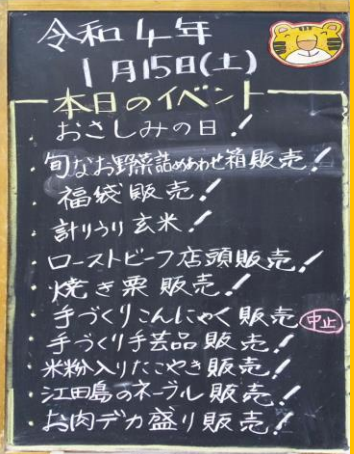 令和4年
1月15日(土)
本日のイベント
・おさしみの日!
・旬なお野菜詰めあわせ箱販売!
・福袋販売!
・計りうり玄米!
・ローストビーフ店頭販売!
・焼き栗販売!
・手づくりこんにゃく販売 中止
・手づくり手芸品販売!
・米粉入りたこやき販売!
・江田島のネーブル販売!
・お肉デカ盛り販売!